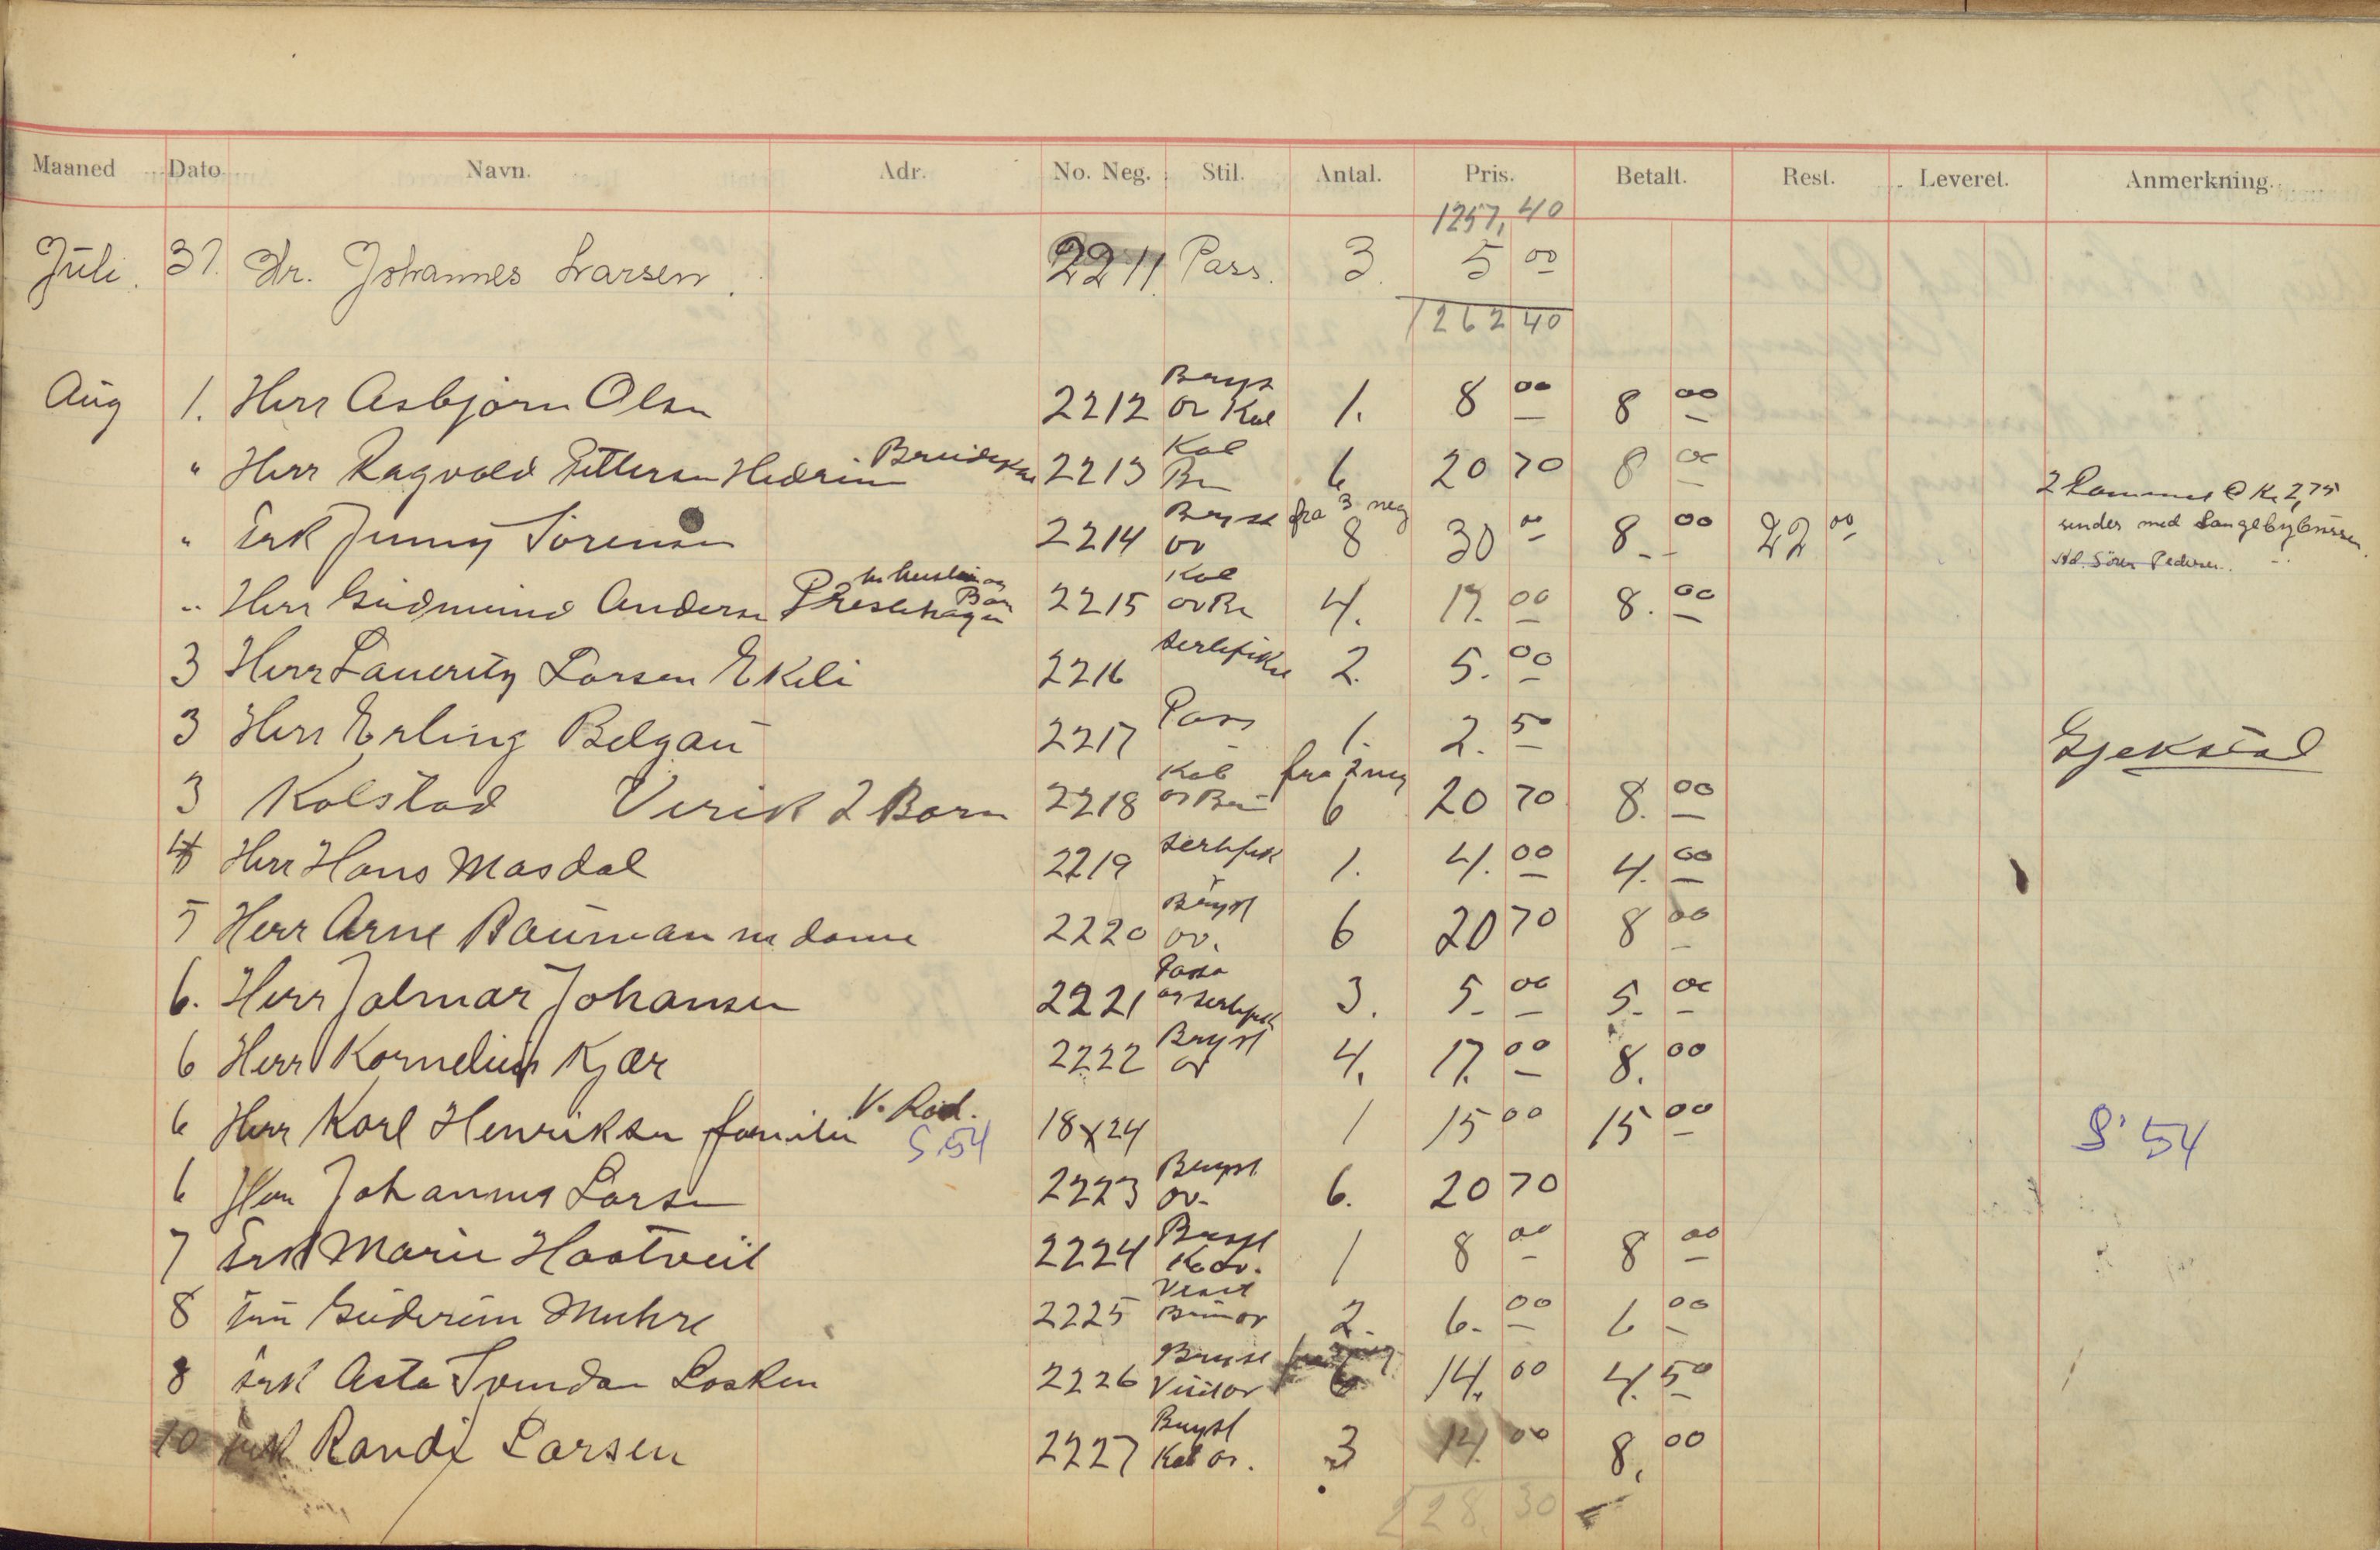 Maaned Dato Navn. Adr. No. Neg. Stil. Antal. Pris. Betalt. Rest. Leveret. Anmerkning.
1257,40
Juli. 31. Hr. Johannes Larsen. 2211. Pass. 3. 5 00
1262 40
Aug 1. Herr Asbjørn Olsn 2212 Bryst ov Kab 1. 8 00 8 00
" Herr Ragvald Pettersen Hedrum 2213 Kab Br 6 20 70 8 00
" Frk Jenny Sörensen 2214 Bryst ov fra 3 neg 8 30 00 8.- 00 22 00
2 Rammer @ Kr 2,75
sendes med Langebybussen.
Søren Pedersen
" Herr Gudmund Anderse Prestehagen 2215 Kab ov Br 4. 17. 00 8. 00
3 Herr Lauritz Larsen Ekeli 2216 sertifikat 2. 5. 00
3 Herr Erling Belgau 2217 Pass 1. 2. 50
Gjekstad
3 Kolstad Virik 2 Barn 2218 Kab ov Br fra 2 neg 6 20 70 8. 00
4 Herr Hans Masdal 2219 sertifik 1. 4. 00 4. 00
5 Herr Arne Bauman m dame 2220 Bryst ov. 6 20 70 8 00
6. Herr Jalmar Johansen 2221 Pass ov sertifik 3. 5.- 00 5.- 00
6 Herr Kornelius Kjær 2222 Bryst ov 4. 17. 00 8. 00
6 Herr Karl Henriksen familie V. Råd. S.54 18x24 1 15 00 15 00 S. 54
6 Herr Johannes Larsn 2223 Bryst ov. 6. 20 70
7 Frk Marie Hootveit 2224 Bryst K ov. 1 8 00 8 00
8 Fru Guderun Muhre 2225 Visit Br ov 2. 6.- 00 6 00
8 Frk Asta Svendsn Løsken 2226 Bryst Visit ov 6 14. 00 4. 50
10 Frk Randi Larsen 2227 Bryst Kab ov. 3 14. 00 8. 00
228. 30